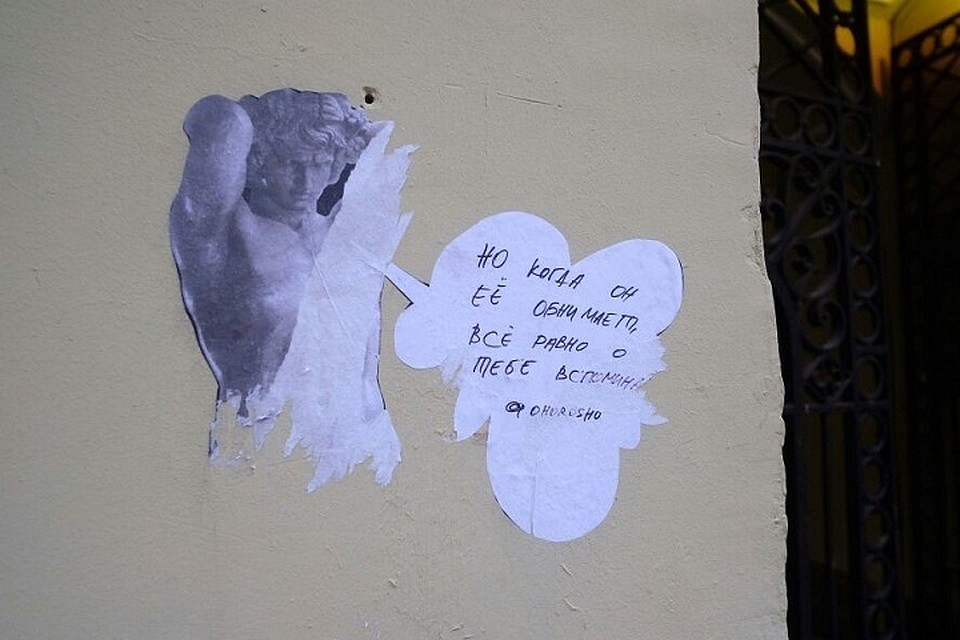 НО КОГДА ОН
ЕЁ ОБНИМАЕТ,
ВСЁ РАВНО О
ТЕБЕ
@OHOROSHO